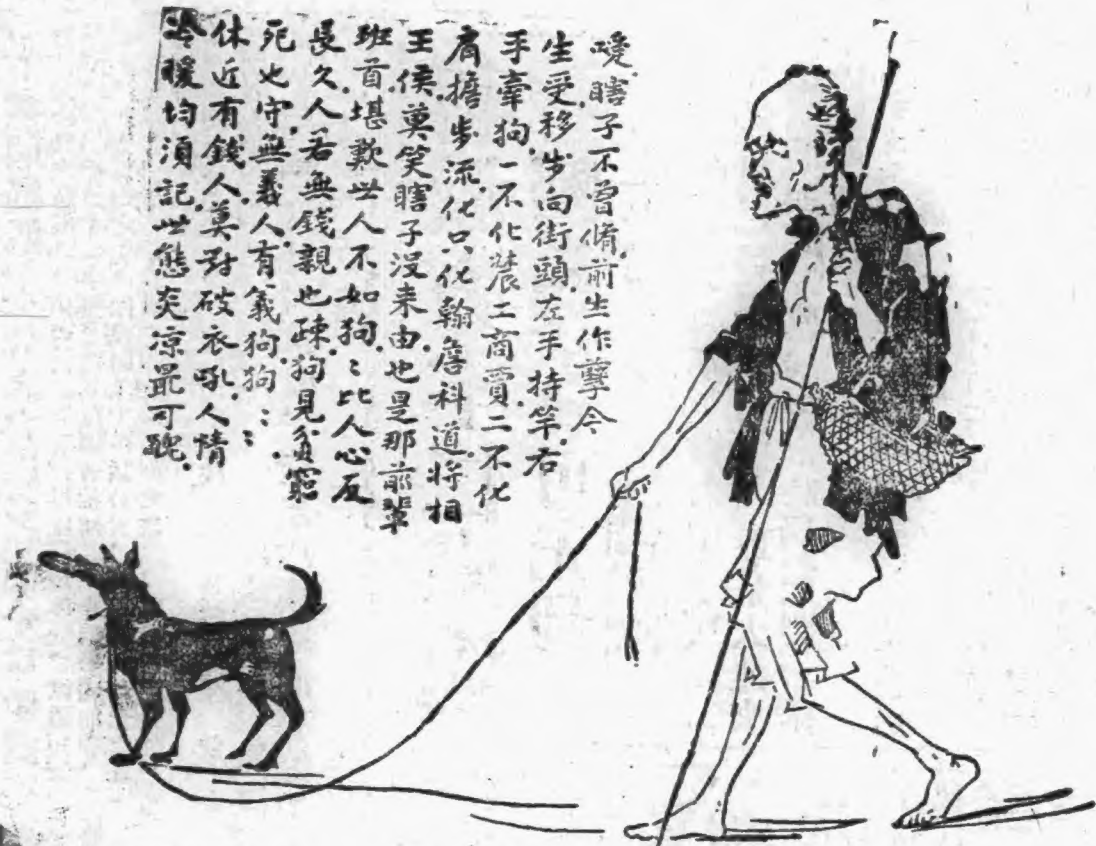 嗳.瞎子不曾脩前生作孽今
生受移步向街頭左手持竿.右
手牽狗.一不化農工商賈二不化
肩擔步流.化只化翰詹科道.將相
王侯.莫笑瞎子没来由也是那前輩
班首.堪歎世人不如狗.狗:比人心反
長久人若無錢親也踈.狗見貧窮
死也守.無義人.有義狗.狗:.:.
休近有錢人.莫对破衣吼.人情
冷暖均須記世態炎凉最可醜.